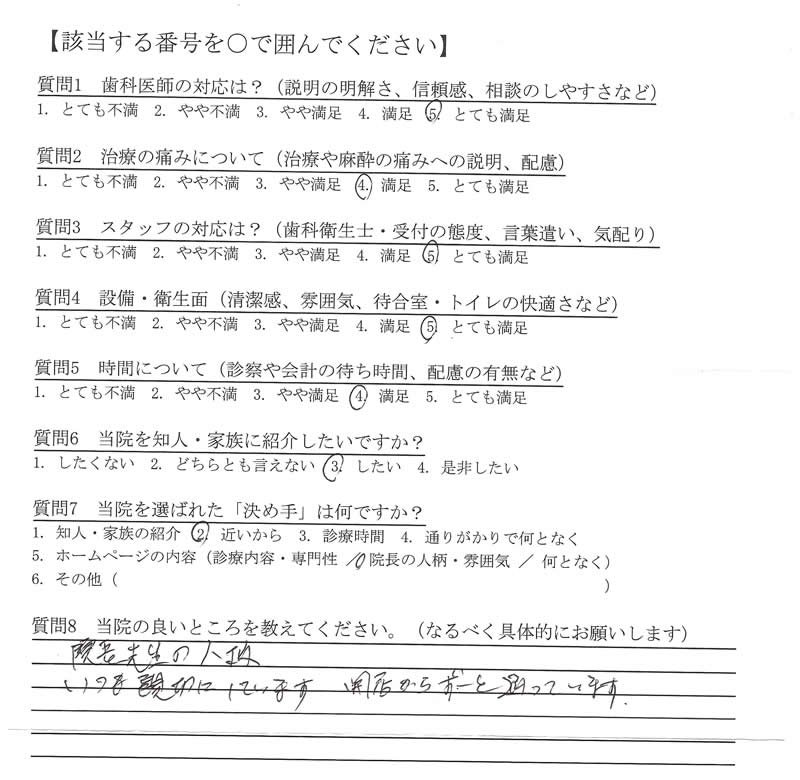 【該当する番号を○で囲んでください】
質問1 歯科医師の対応は？（説明の明解さ、信頼感、相談のしやすさなど）
1. とても不満 2. やや不満 3. やや満足 4. 満足 5. とても満足
質問2 治療の痛みについて（治療や麻酔の痛みへの説明、配慮）
1. とても不満 2. やや不満 3. やや満足 4. 満足 5. とても満足
質問3 スタッフの対応は？（歯科衛生士・受付の態度、言葉遣い、気配り）
1. とても不満 2. やや不満 3. やや満足 4. 満足 5. とても満足
質問4 設備・衛生面（清潔感、雰囲気、待合室・トイレの快適さなど）
1. とても不満 2. やや不満 3. やや満足 4. 満足 5. とても満足
質問5 時間について（診察や会計の待ち時間、配慮の有無など）
1. とても不満 2. やや不満 3. やや満足 4. 満足 5. とても満足
質問6 当院を知人・家族に紹介したいですか？
1. したくない 2. どちらとも言えない 3. したい 4. 是非したい
質問7 当院を選ばれた「決め手」は何ですか？
1. 知人・家族の紹介 2. 近いから 3. 診療時間 4. 通りがかりで何となく
5. ホームページの内容（診療内容・専門性 / 院長の人柄・雰囲気 / 何となく）
6. その他（ ）
質問8 当院の良いところを教えてください。（なるべく具体的にお願いします）
院長先生の人柄
いつも親切にしています 開店からずーと通っています.